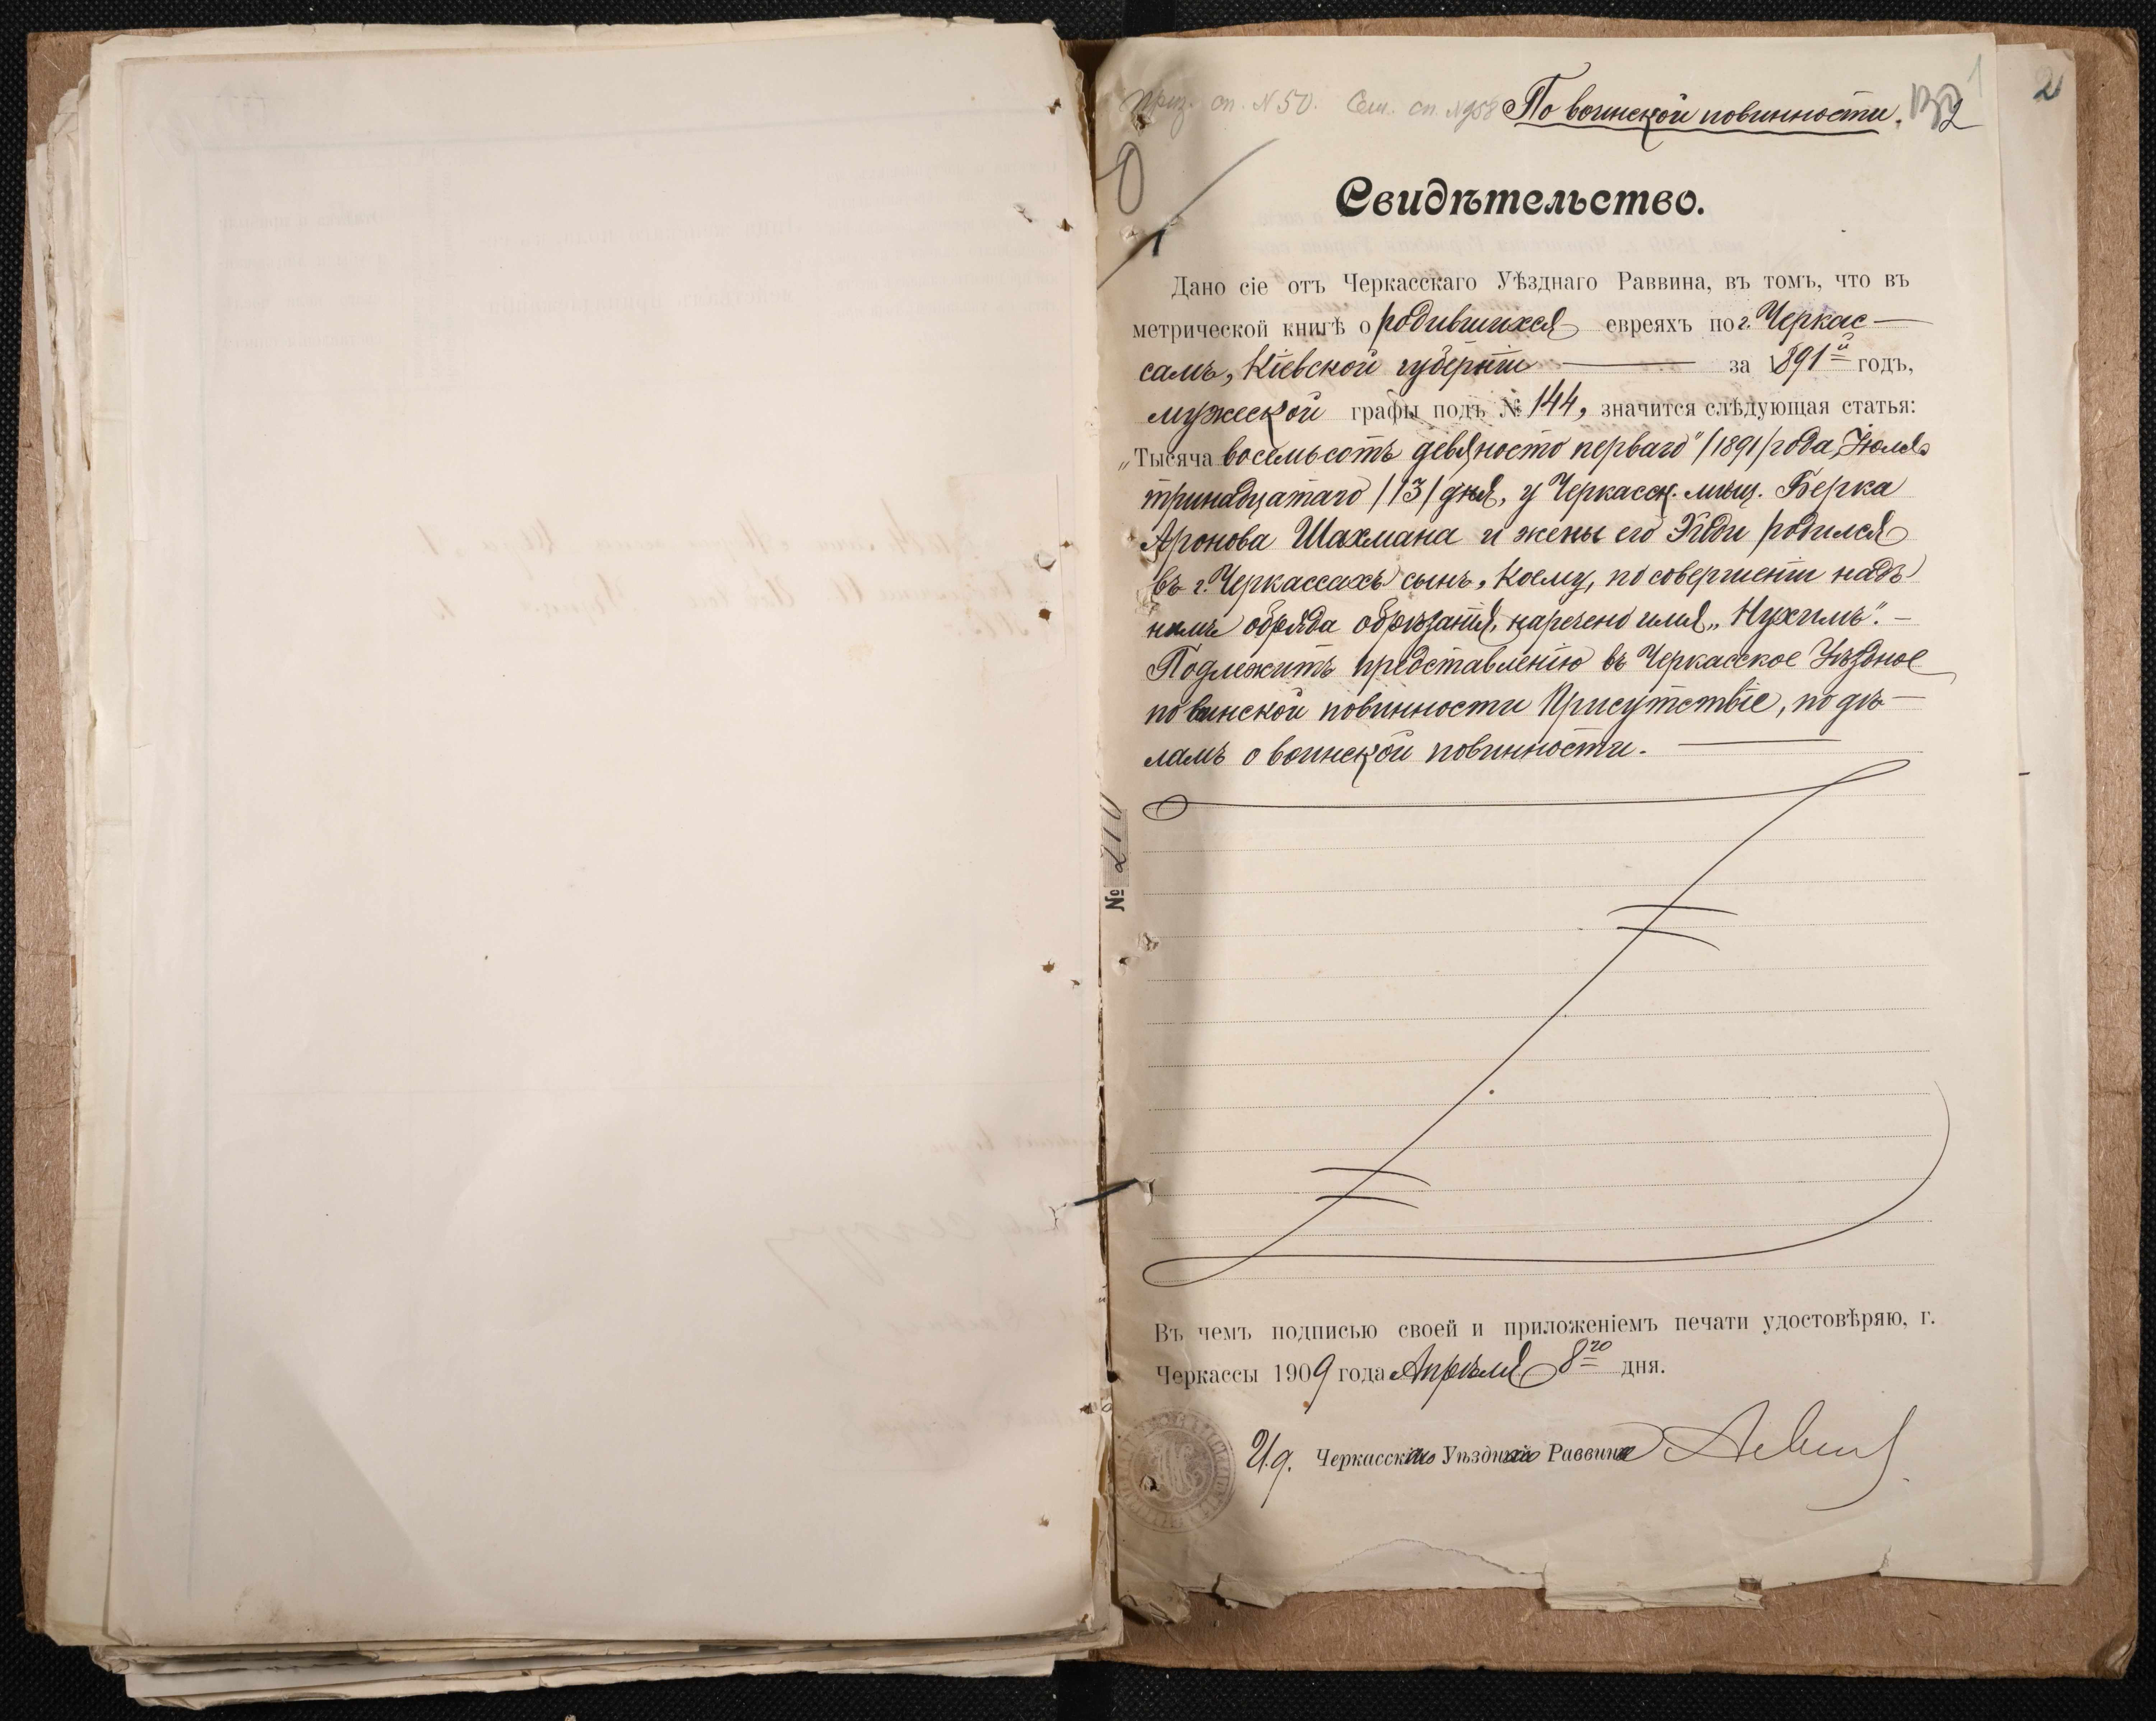 Приз. сп. N 50. Сем. сп. N 958 По воинской повинности. 2
2
Свидѣтельство.
Дано сіе отъ Черкасскаго Уѣзднаго Раввина, въ томъ, что въ
метрической книгѣ о родившихся евреяхъ по г. Черкас-
самъ, Кіевской губерніи за 1891й годъ,
мужеской графы подъ № 144, значится слѣдующая статья:
„Тысяча восемьсотъ девяносто перваго" /1891/ года, Іюля
тринадцатаго /13/ дня, у Черкасск. мѣщ. Берка
Аронова Шахмана и жены его родился
въ г. Черкассахъ сынъ, коему, по совершеніи надъ
нимъ обряда обрѣзанія, наречено имя „Нухимъ". -
Подлежитъ представленію въ Черкасское Уѣздное
по воинской повинности Присутствіе, по дѣ-
ламъ о воинской повинности.
№ 210
Въ чемъ подписью своей и приложеніемъ печати удостовѣряю, г.
Черкассы 1909 года Апрѣля 8го дня.
И.д. Черкасскаго Уѣзднаго Раввина